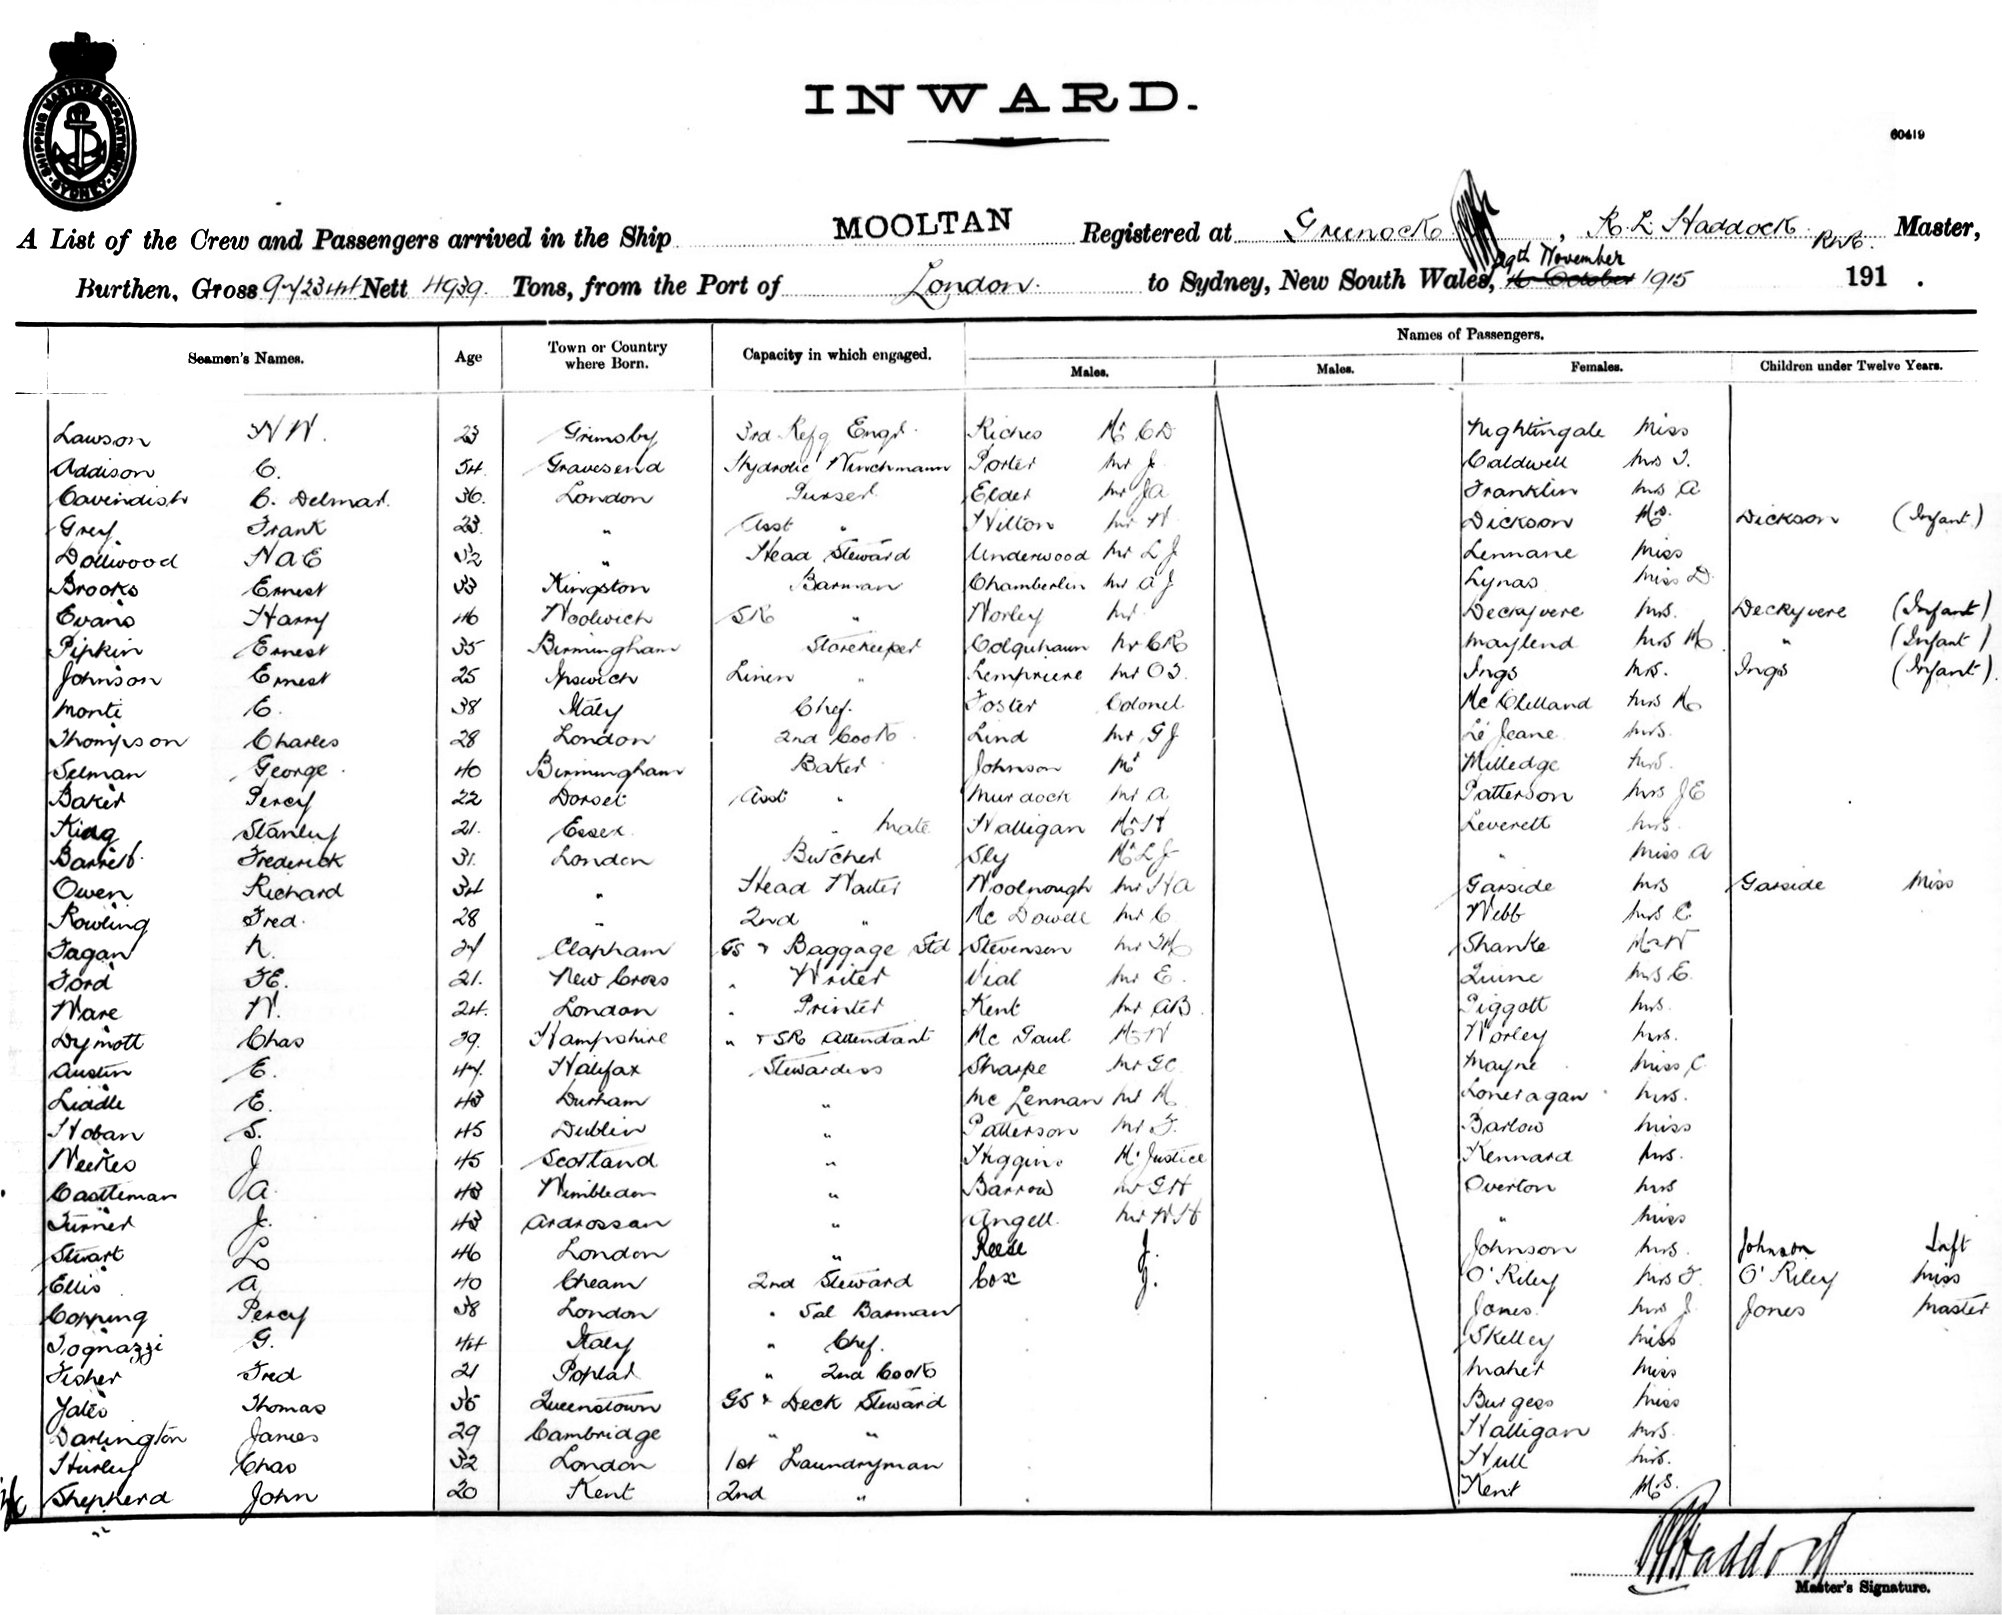 SHIPPING MASTERS DEPARTMENT SYDNEY
INWARD.
60419
A List of the Crew and Passengers arrived in the Ship MOOLTAN Registered at Greenock, R. L. Haddock RNR. Master,
Burthen, Gross Nett 4939 Tons, from the Port of London. to Sydney, New South Wales, 16 October 29th November 1915 191 .
Seamen's Names. Age Town or Country where Born. Capacity in which engaged. Names of Passengers.
Males. Males. Females. Children under Twelve Years.
Lawson 23 Grimsby 3rd Refg Engr. Riches Mr C D Nightingale Miss
Addison C. 54 Gravesend Hydrolic Winchmann Porter Mr J. Caldwell Mrs
Cavendish C. Delmar. 36. London Purser Elder Mr J A Franklin Mrs A
Grey. Frank 23 " Asst " Hilton Mr W. Dickson Mrs. Dickson (Infant)
Dolliwood W A E " Head Steward Underwood Mr L J. Lennane Miss
Brooks Ernest 33 Kingston Barman Chamberlin Mr A J Lynas Miss D.
Evans Harry 40 Woolwich SR " Worley Mr Deckyvere Mrs. Deckyvere (Infant)
Pipkin Ernest 35 Birmingham Storekeeper Colquhoun Mr C R Maylend Mrs " (Infant)
Johnson Ernest 25 Ipswich Linen " Lempriere Mr O S. Ings Mrs. Ings (Infant).
Monti C. 38 Italy Chef. Foster Colonel Mc Clelland Mrs
Thompson Charles 28 London 2nd Cook Lind Mr G J Le Jeane Mrs.
Selman George. 40 Birmingham Baker Johnson Mr Milledge Mrs.
Baker Percy 22 Dorset Asst " Murdock Mr A Patterson Mrs J E
King Stanley 21. Essex. " Mate Halligan Mr H Leverett Mrs.
Barrett. Frederick 31. London Butcher Sly Mr L J " Miss A
Owen Richard 34 " Head Waiter Woolnough Mr H A Garside Mrs Garside Miss
Rowling Fred. 28 " 2nd " Mc Dowell Mr C Webb Mrs C.
Fagan Clapham GS & Baggage Std Stevenson Mr Shanke
Ford F E. 21. New Cross " Writer Vial Mr E. Quine Mrs E.
Ware W. 24. London " Printer Kent Mr A B. Piggott Mrs.
Dymott Chas 39. Hampshire " & SR Attendant Mc Paul Mr W Worley Mrs.
Austin E. 47. Halifax Stewardess Sharpe Mr G C. Mayne Miss C.
Liddle E. 43 Durham " Mc Lennan Mr Loneragan Mrs.
Hoban S. 45 Dublin " Patterson Mr F. Barlow Miss
Weekes J 45 Scotland " Higgins Mr Justice Kennard Mrs.
Castleman A. 43 Wimbledon " Barrow Mr G H Overton Mrs
Turner J. 43 Ardrossan " Angell. Mr W H " Miss
Stuart L 46 London " Reese J. Johnson Mrs. Johnson Inft
Ellis A 40 Cheam 2nd Steward Cox J. O'Riley Mrs F. O'Riley Miss
Copping Percy 38 London " Sal Barman Jones. Mrs J. Jones Master
Tognazzi G. 44 Italy " Chef. Skelley Miss
Fisher Fred 21 Poplar " 2nd Cook Maher Miss
Yates Thomas 35 Queenstown GS & Deck Steward Burgess Miss
Darlington James 29 Cambridge " " Halligan Mrs.
Hurley Chas 32 London 1st Laundryman Hull Mrs.
Shepherd John 20 Kent 2nd " Kent Mrs.
R L Haddock
Master's Signature.